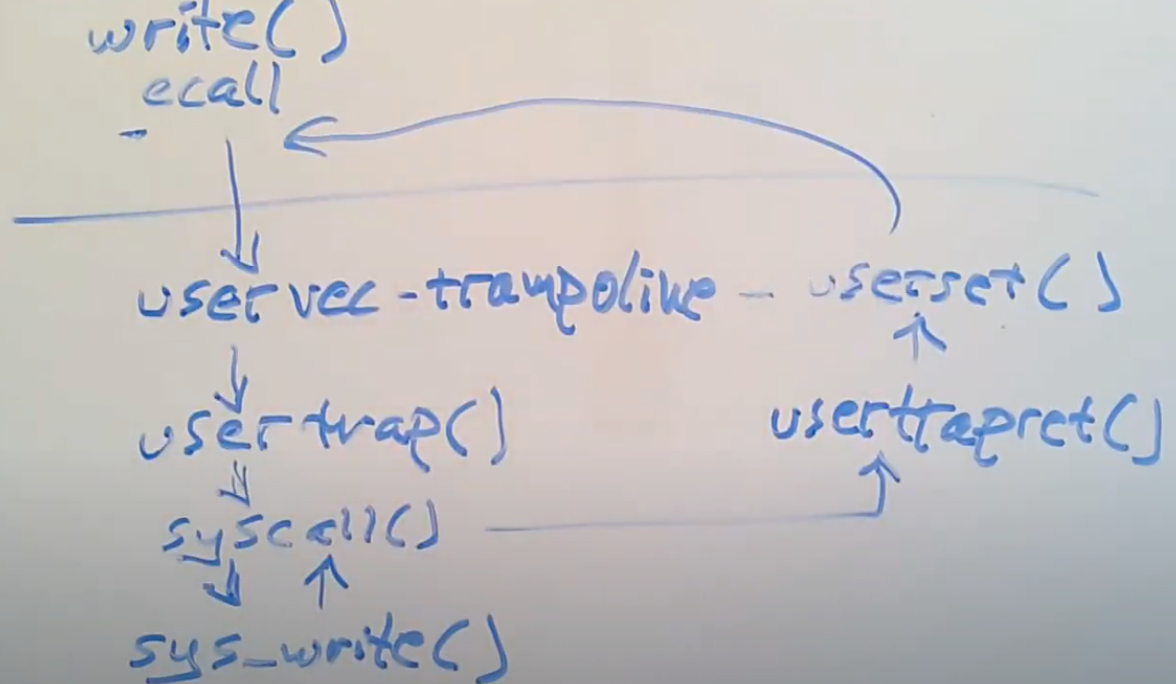 write()
ecall
uservec - trampoline - userset()
usertrap()
usertrapret()
syscall()
sys_write()